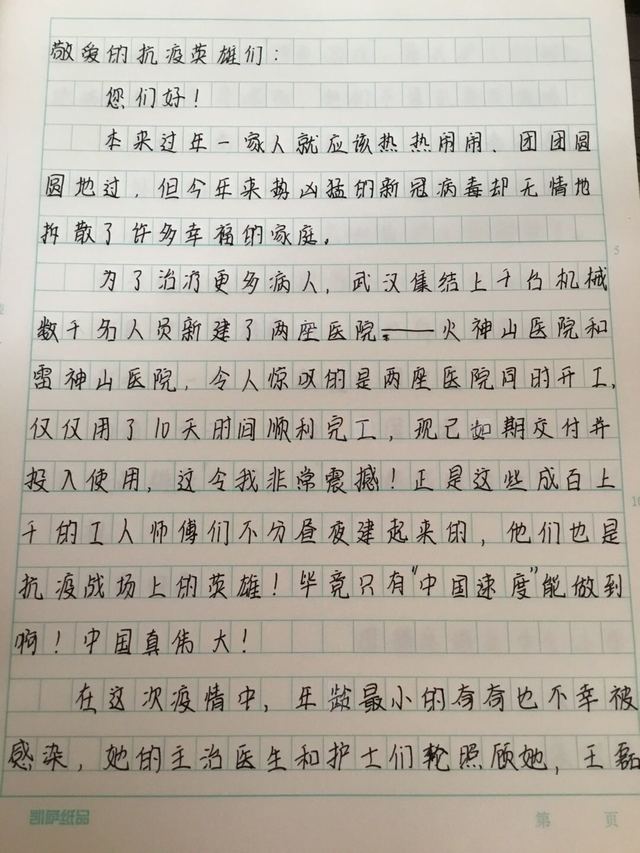 敬爱的抗疫英雄们：
您们好！
本来过年一家人就应该热热闹闹、团团圆
圆地过，但今年来势凶猛的新冠病毒却无情地
拆散了许多幸福的家庭。
为了治疗更多病人，武汉集结上千台机械
数千名人员新建了两座医院——火神山医院和
雷神山医院，令人惊叹的是两座医院同时开工，
仅仅用了10天时间顺利完工，现已如期交付并
投入使用，这令我非常震撼！正是这些成百上
千的工人师傅们不分昼夜建起来的，他们也是
抗疫战场上的英雄！毕竟只有“中国速度”能做到
啊！中国真伟大！
在这次疫情中，年龄最小的奇奇也不幸被
感染，她的主治医生和护士们轮照顾她，王磊
5
10
凯萨纸品
第 页